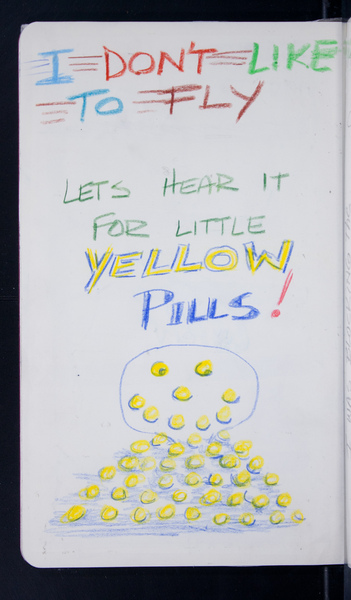 I DON'T LIKE
TO FLY
LETS HEAR IT
FOR LITTLE
YELLOW
PILLS!